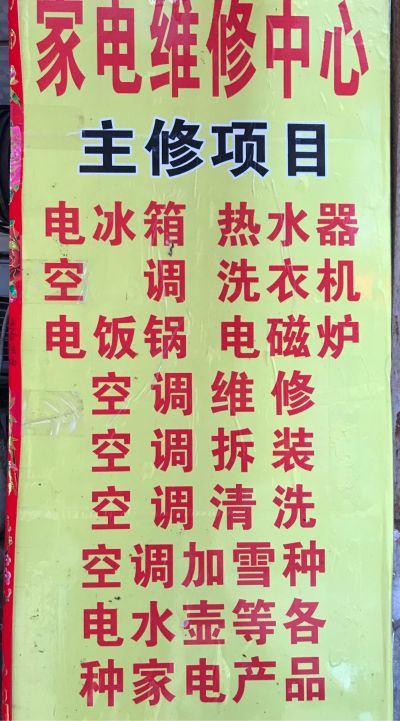 家电维修中心
主修项目
电冰箱 热水器
空 调 洗衣机
电饭锅 电磁炉
空调维修
空调拆装
空调清洗
空调加雪种
电水壶等各
种家电产品